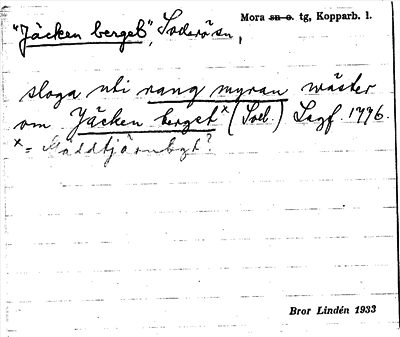 "Jäcken berget", Soderåsn, Mora sn o. tg, Kopparb. l.
sloga uti rang myran wäster
om Jäcken berget x (Soll.) Lagf. 1776.
x = Måddtjärnbgt?
Bror Lindén 1933